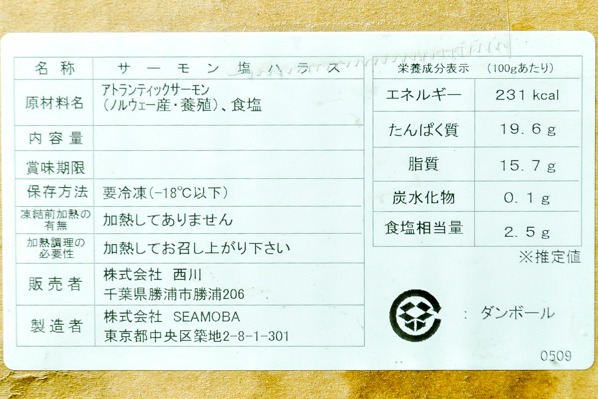 名称 サーモン塩ハラス
原材料名 アトランティックサーモン
(ノルウェー産・養殖)、食塩
内容量
賞味期限
保存方法 要冷凍(-18℃以下)
凍結前加熱の
有無 加熱してありません
加熱調理の
必要性 加熱してお召し上がり下さい
販売者 株式会社 西川
千葉県勝浦市勝浦206
製造者 株式会社 SEAMOBA
東京都中央区築地2-8-1-301
栄養成分表示 (100gあたり)
エネルギー 231 kcal
たんぱく質 19.6 g
脂質 15.7 g
炭水化物 0.1 g
食塩相当量 2.5 g
※推定値
: ダンボール
0509